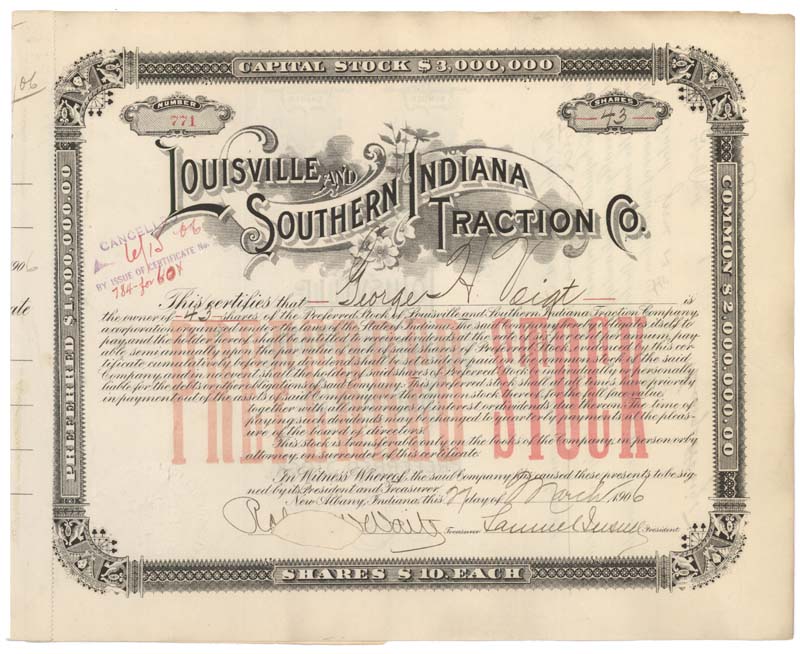 CAPITAL STOCK $3,000,000
NUMBER
771
SHARES
43
LOUISVILLE AND
SOUTHERN INDIANA
TRACTION CO.
PREFERRED $1,000,000.00
COMMON $2,000,000.00
CANCELLED
6/15 06
BY ISSUE OF CERTIFICATE No.
784 - for 60
06
906
This certifies that George H. Voigt is
the owner of 43 shares of the Preferred Stock of Louisville and Southern Indiana Traction Company,
a corporation organized under the laws of the State of Indiana, the said Company hereby obligates itself to
pay, and the holder hereof shall be entitled to receive dividends at the rate of per cent per annum, pay
able semi annually upon the par value of each of said shares of Preferred Stock, owned by this cer
tificate cumulatively before any dividend shall be set apart or paid on the common stock of the said
Company, and in no event shall the holder of said shares of Preferred Stock be individually or personally
liable for the debts or other obligations of said Company. This preferred stock shall at all times have priority
in payment out of the assets of said Company over the common stock thereof, for the full face value,
together with all arrearages of interest or dividends due thereon. The time of
paying such dividends may be changed to quarterly payments at the pleas-
ure of the board of directors.
This stock is transferable only on the books of the Company, in person or by
attorney, on surrender of this certificate.
PREFERRED STOCK
In Witness Whereof, the said Company has caused these presents to be sig-
ned by its President and Treasurer,
New Albany, Indiana, this 27 day of March 1906
Treasurer Samuel Insull President
SHARES $10. EACH